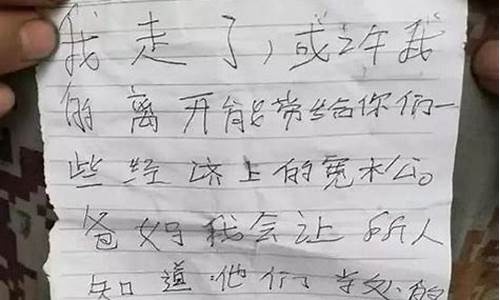 我走了，或许我
的离开能带给你们一
些经济上的宽松。
爸妈我会让所人
知道他们当处的